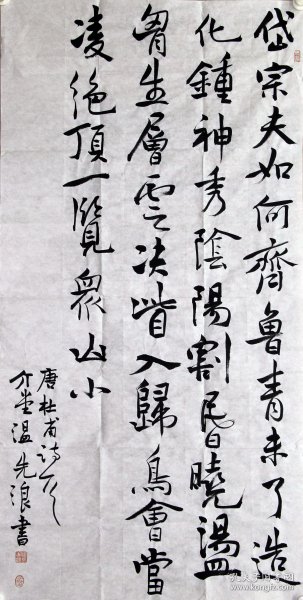 岱宗夫如何齊魯青未了造
化鍾神秀陰陽割昏曉盪
胷生層雲决眥入歸鳥會當
凌絶頂一覽衆山小
唐杜甫詩
介堂温先浪書
孔夫子旧书网